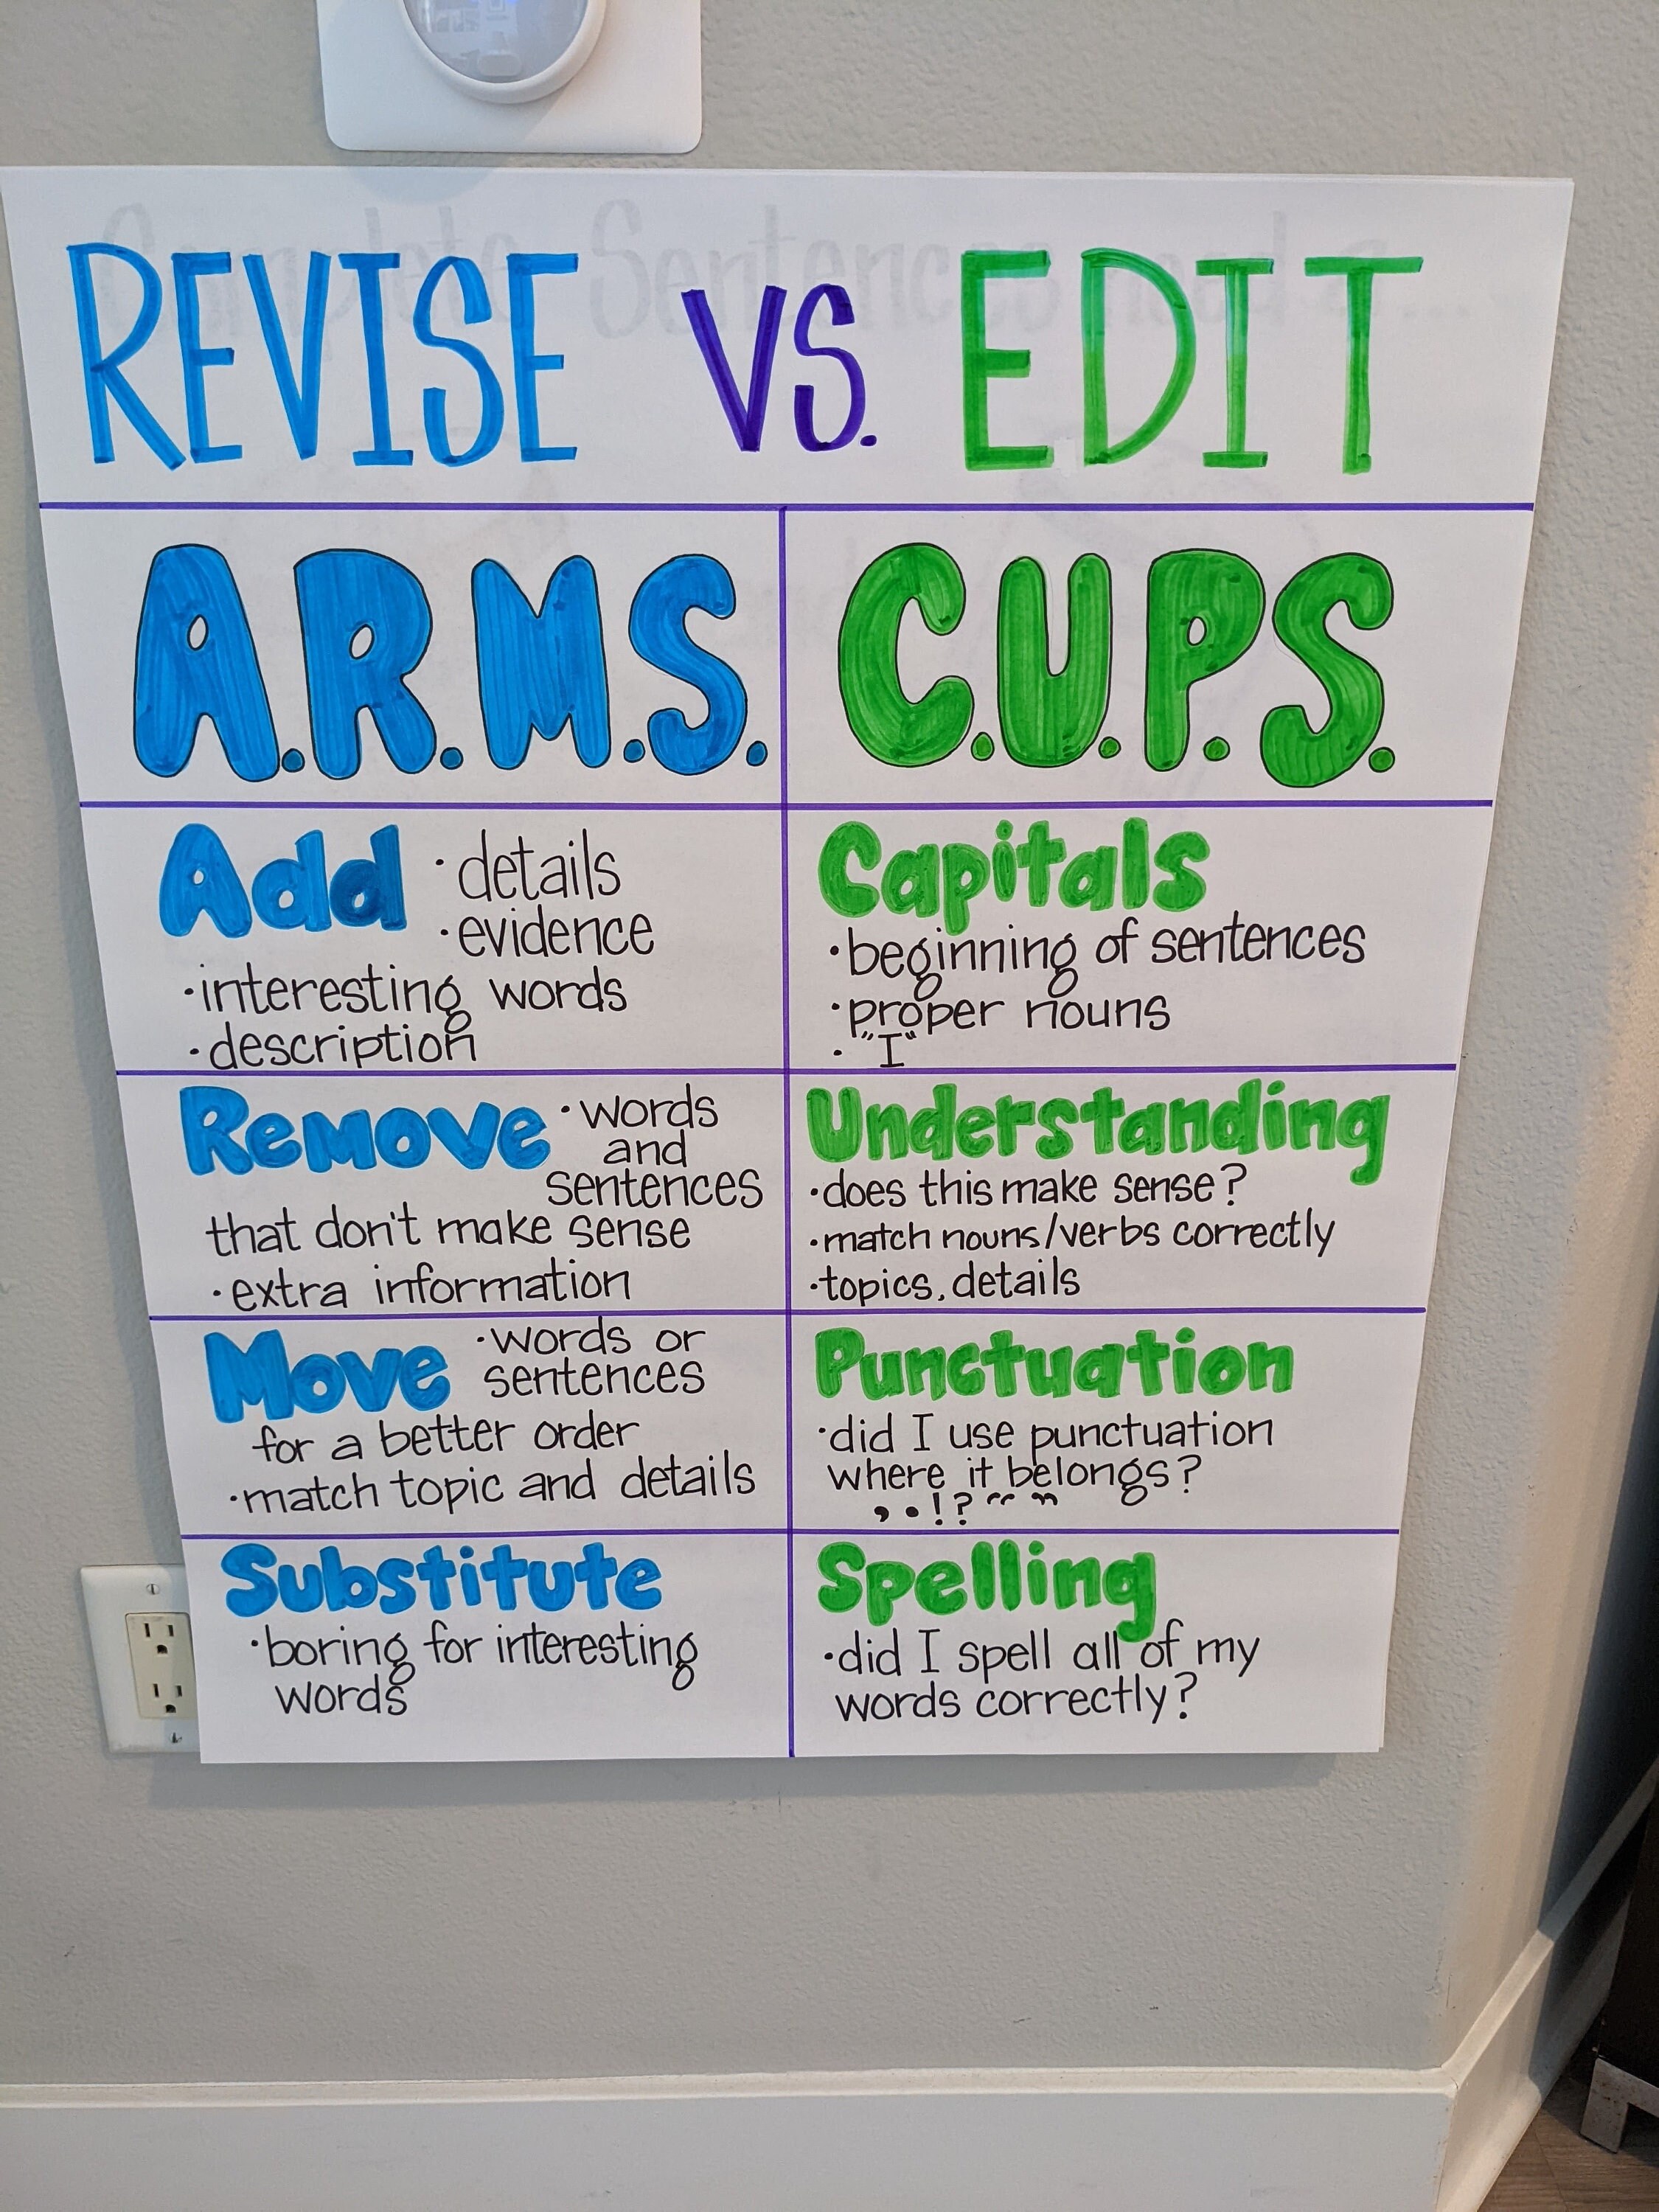 REVISE VS. EDIT
A.R.M.S.
Add • details
• evidence
• interesting words
• description
Remove • words
and
sentences
that don't make sense
• extra information
Move • words or
sentences
for a better order
• match topic and details
Substitute
• boring for interesting
words
C.U.P.S.
Capitals
• beginning of sentences
• proper nouns
• "I"
Understanding
• does this make sense?
• match nouns/verbs correctly
• topics, details
Punctuation
• did I use punctuation
where it belongs?
, . ! ? " "
Spelling
• did I spell all of my
words correctly?